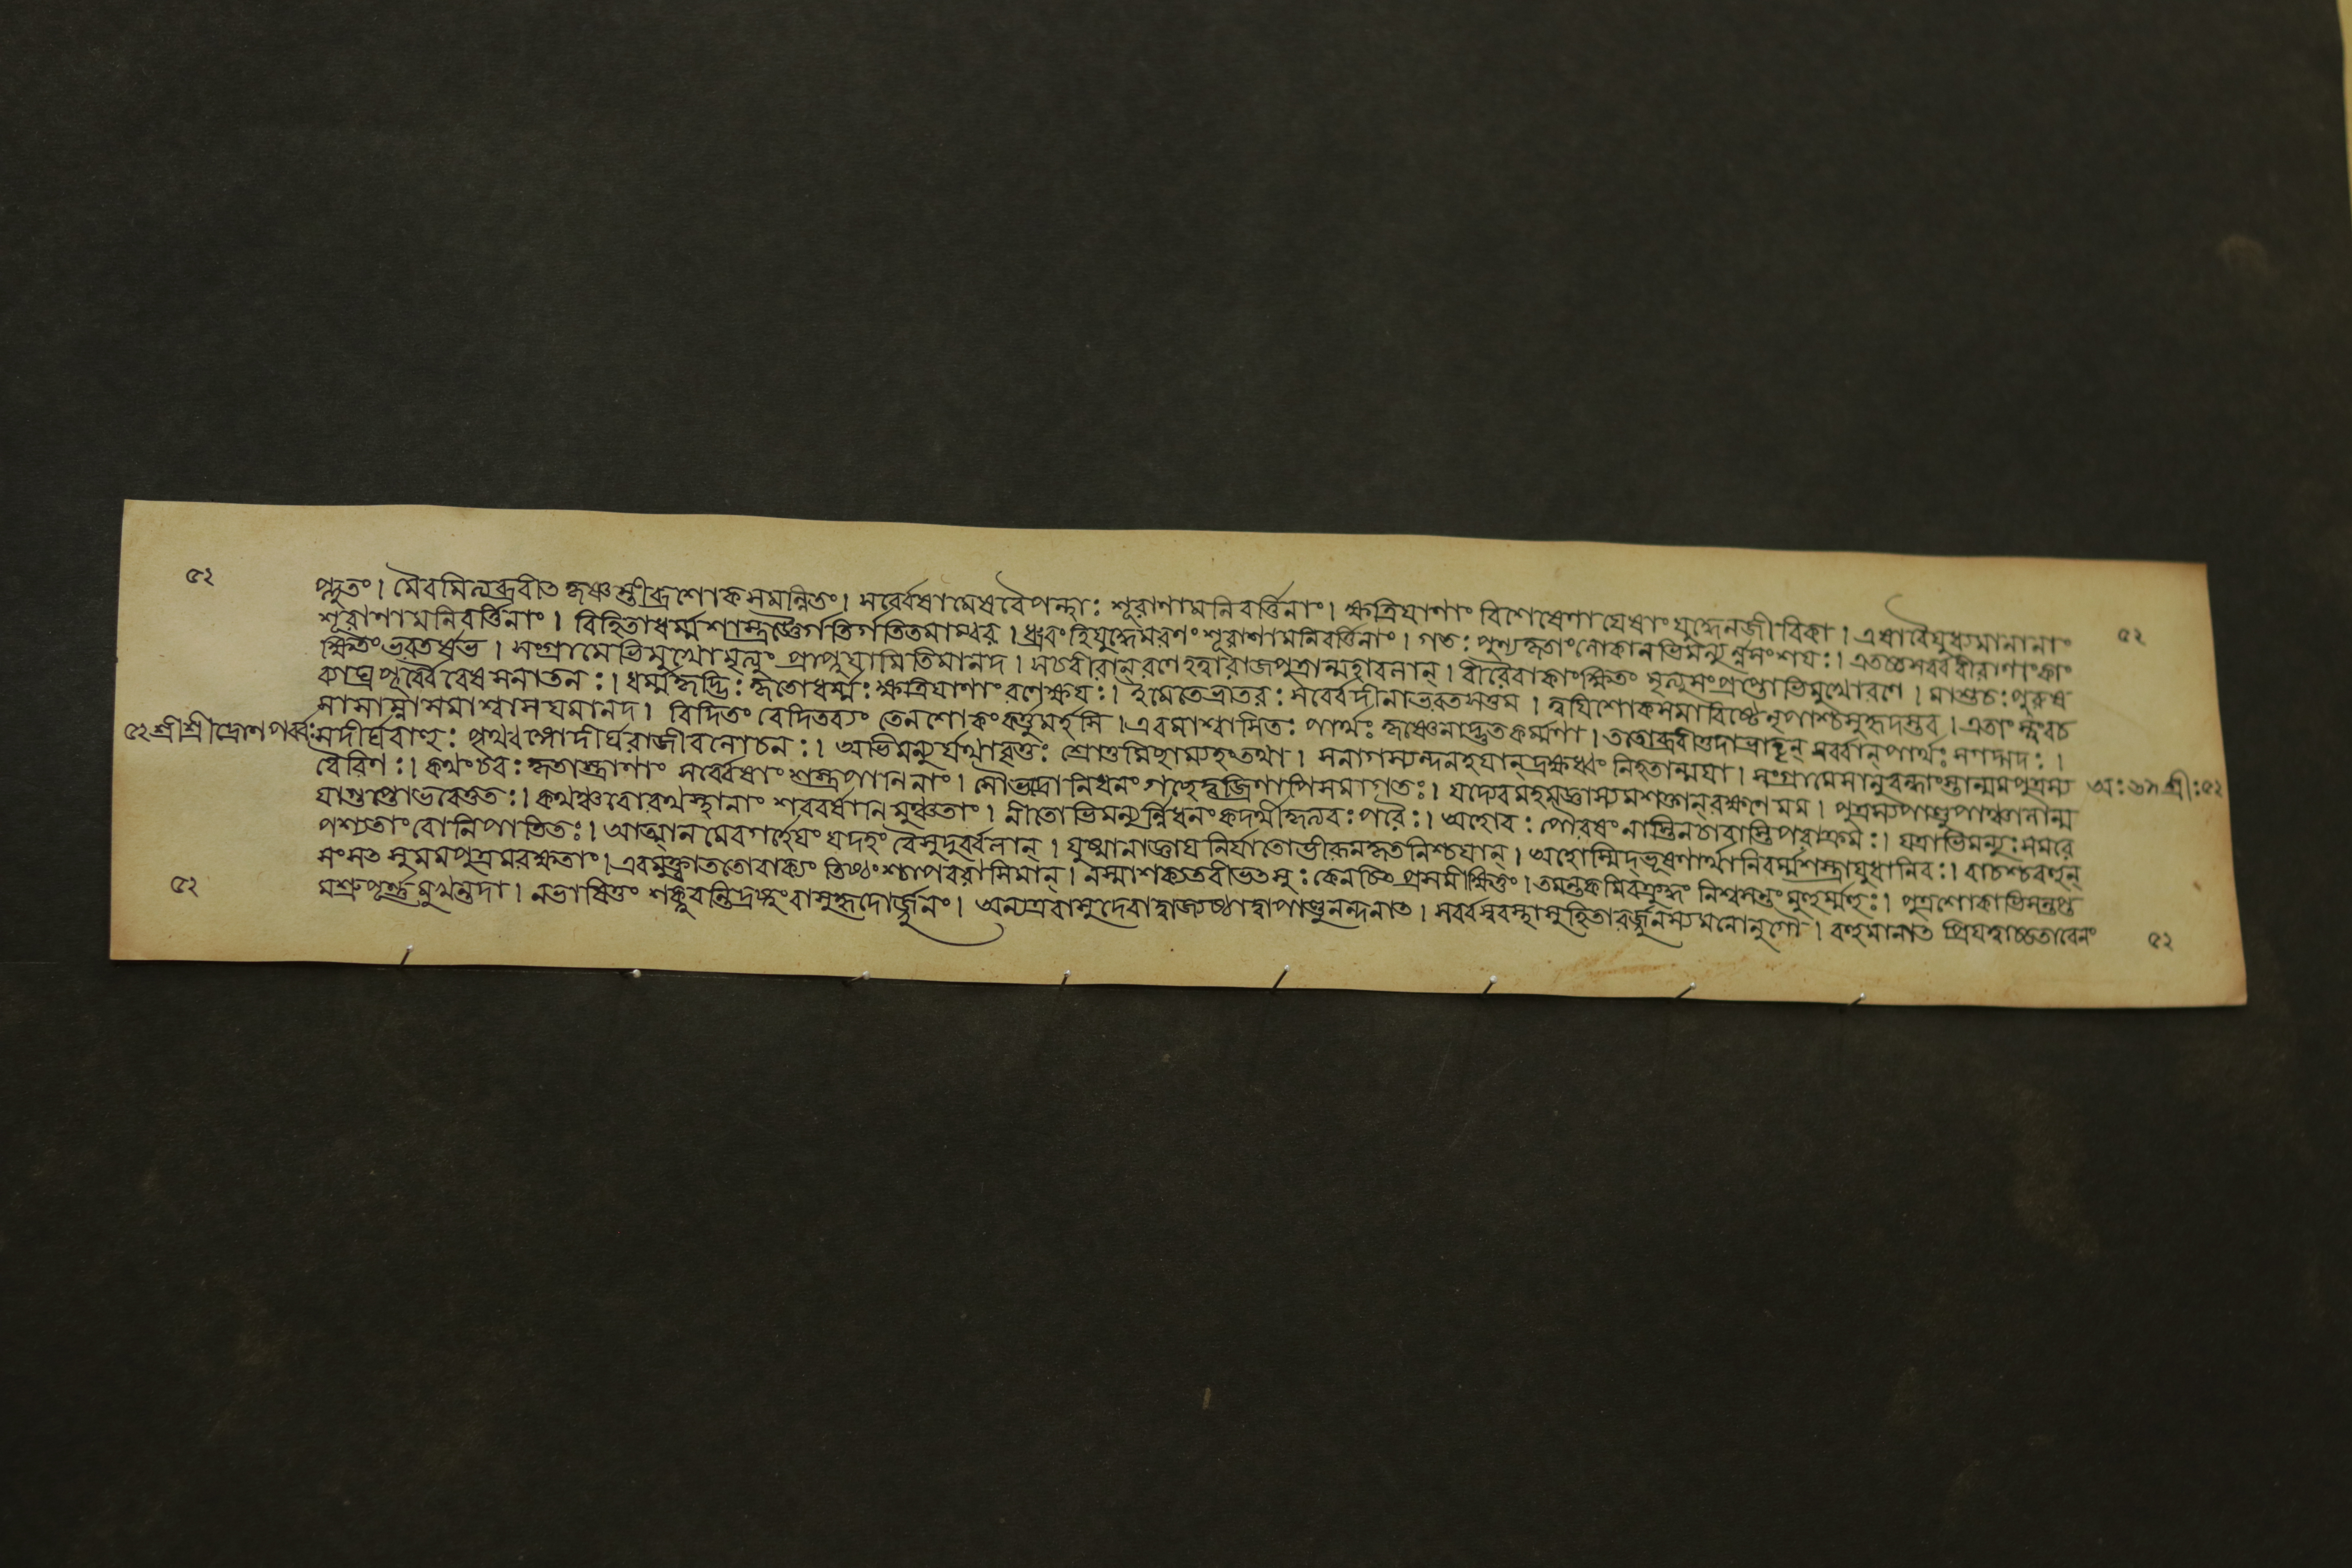 ৫২
প্লুতং। মৈবমিত্যব্রবীত কৃষ্ণস্তীব্রশোকসমন্নিতং। সর্ব্বেষামেষবৈপন্থাঃ শূরাণামনিবর্ত্তিনাং। ক্ষত্রিয়াণাং বিশেষেণায়েষাং যুদ্ধেনজীবিকা। এষাবৈযুধ্যমানানাং
শূরাণামনিবর্ত্তিনাং। বিহিতাধর্ম্মশাস্ত্রজ্ঞৈর্গতির্গতিতমাম্বর। ধ্রুবংহিযুদ্ধেমরণং শূরাণামনিবর্ত্তিনাং। গতঃ পুণ্যকৃতাংলোকানভিমন্যুর্ন্নসংশয়ঃ। এতচ্চসর্ব্ববীরাণাংকাং
৫২
ক্ষিতংভরতর্ষভ। সংগ্রামেভিমুখোমৃত্যুং প্রাপ্নুয়ামিতিমানদ। সচবীরান্ রণেহত্বারাজপুত্রান্মহাবলান্। বীরৈবাকাংক্ষিতং মৃত্যুসংপ্রপ্তোভিমুখোরণে। মাশুচঃপুরুষ
কাঘ্রপূর্ব্বৈবেষসনাতনঃ। ধর্ম্মকৃদ্ভিঃ কৃতোধর্ম্মঃ ক্ষত্রিয়াণাংরণেক্ষয়ঃ। ইমেতেভ্রাতরঃ সর্ব্বেদীনাভরতসত্তম। ত্বয়িশোকসমাবিষ্টেনৃপাশ্চসুহৃদস্তব। এতাংস্ত্বংবচ
সাসাম্নাসমাশ্বাসয়মানদ। বিদিতং বেদিতব্যং তেনশোকংকর্ত্তুমর্হসি। এবমাশ্বাসিতঃ পার্থঃ কৃষ্ণেনাদ্ভুতকর্ম্মণা। ততোব্রবীত্তদাভ্রাতৄন্ সর্ব্বান্পার্থঃ সগদ্গদঃ।
৫২শ্রীশ্রীদ্রোণপর্ব্বঃ
সদীর্ঘবাহুঃ পৃথ্বংসোদীর্ঘরাজীবলোচনঃ। অভিমন্যুর্যথাবৃত্তঃ শ্রোতুমিছাম্যহংতথা। সনাগস্যন্দনহয়ান্দ্রক্ষধ্বং নিহতান্ময়া। সংগ্রামেসানুবন্ধাংস্তান্মমপুত্রস্য
অঃ৬৯ শ্রীঃ৫২
বৈরিণঃ। কথংচবঃ কৃতাস্ত্রাণাং সর্ব্বেষাং শস্ত্রপাণিনাং। সৌভদ্রোনিধনং গছেদ্বজ্রিণাপিসমাগতঃ। যদ্যেবমহমজ্ঞাস্যমশক্তান্ রক্ষণেমম। পুত্রস্যপাণ্ডুপাঞ্চালান্ম
য়াগুপ্তোভবেত্ততঃ। কথঞ্চবোরথস্থানাং শরবর্ষাণিমুঞ্চতাং। নীতোভিমন্যুর্ন্নিধনং কদর্থীকৃত্যবঃ পরৈঃ। অহোবঃ পৌরষং নাস্তিনচবাস্তিপরাক্রমঃ। যত্রাভিমন্যুঃ সমরে
পশ্যতাং বোনিপাতিতঃ। আত্মানমেবগর্হেয়ং যদহং বৈসুদুর্ব্বলান্। যুষ্মানাজ্ঞায়নির্যাতোভীরূনকৃতনিশ্চয়ান্। অহোস্মিদ্ভূষণার্থানিবর্ম্মশস্ত্রায়ুধানিবঃ। বাচশ্চবক্তুন্
সংসত্সুমমপুত্রমরক্ষতাং। এবমুক্ত্বাততোবাক্যং তিষ্ঠংশ্চাপবরাসিমান্। নস্মাশক্যতবীভত্সুঃ কেনচিত্প্রসমীক্ষিতুং। তমন্তকমিবক্রুদ্ধং নিশ্বসন্তং মুহুর্ম্মুহুঃ। পুত্রশোকাভিসন্তপ্ত
৫২
মশ্রুপূর্ণমুখন্তদা। নভাষিতুং শক্নুবন্তিদ্রষ্টুংবাসুহৃদোর্জ্জুনং। অন্যত্রবাসুদেবাদ্বাজ্যেষ্ঠাদ্বাপাণ্ডুনন্দনাত। সর্ব্বস্ববস্থাসুহিতাবর্জ্জুনস্যমনোনুগৌ। বহুমানাত প্রিয়ত্বাচ্চতাবেনং
৫২